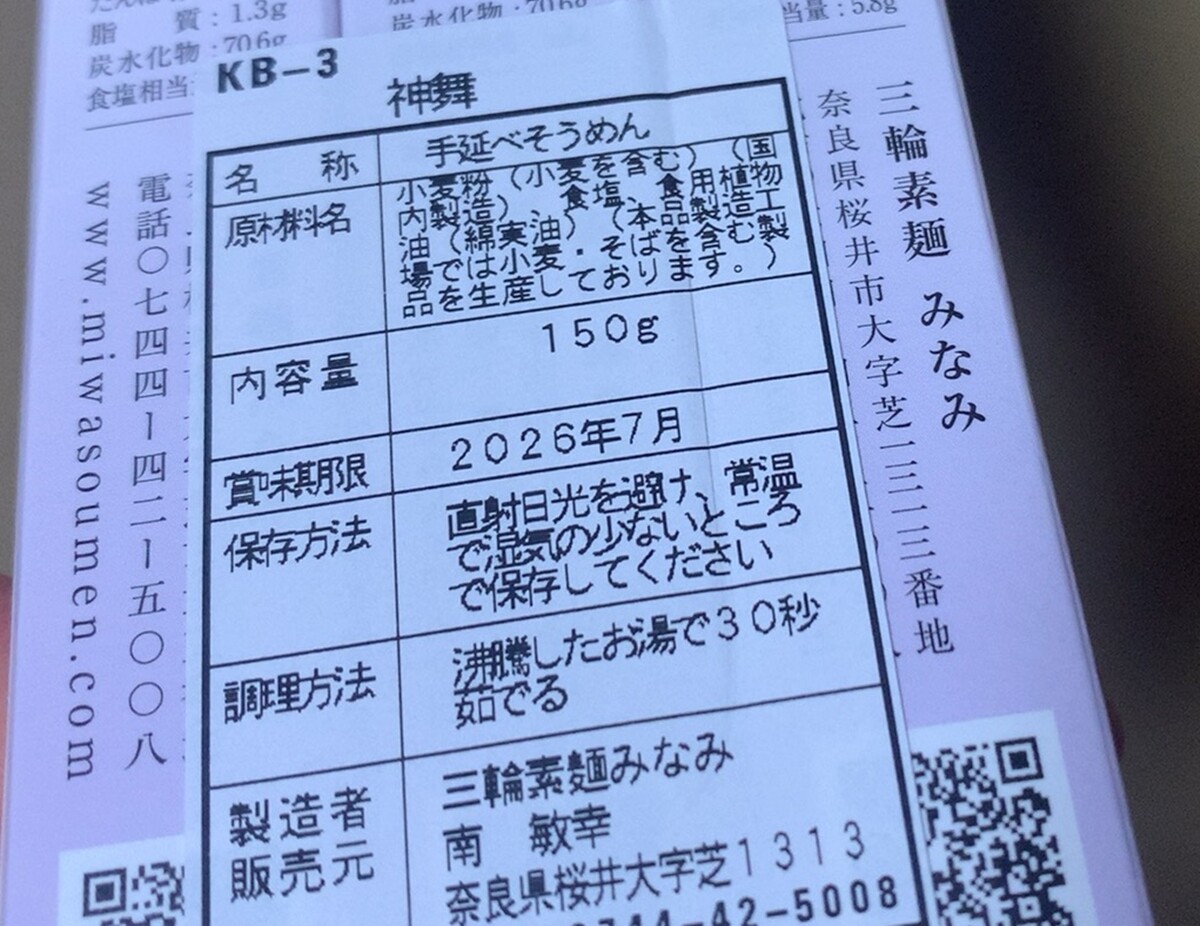 脂 質：1.3g
炭水化物：70.6g
食塩相当
炭水化物：70.6g
当量：5.8g
KB－3
神舞
名 称
手延べそうめん
原材料名
小麦粉（小麦を含む）（国
内製造）、食塩、食用植物
油（綿実油）（本品製造工
場では小麦・そばを含む製
品を生産しております。）
内容量
150g
賞味期限
2026年7月
保存方法
直射日光を避け、常温
で湿気の少ないところ
で保存してください
調理方法
沸騰したお湯で30秒
茹でる
製造者
販売元
三輪素麺みなみ
南 敏幸
奈良県桜井大字芝1313
0744-42-5008
三輪素麺 みなみ
奈良県桜井市大字芝一三一三番地
電話〇七四四ー四二ー五〇〇八
www.miwasoumen.com